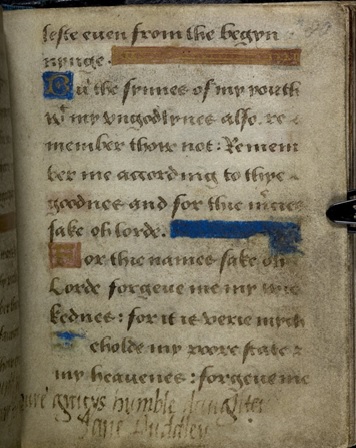 leste even from the begyn
nynge.
But the synnes of my youth
wt my vngodlynes also. re
member thow not: Remem
ber me accordng to thye
goodnes and for thie mcies
sake oh lorde.
For thie names sake oh
Lorde forgeue me my wic
kednes: for it is verie mych
eholde my poore state &
my heauenes: forgeue me
youre gracys humble daughter
Jane Duddley